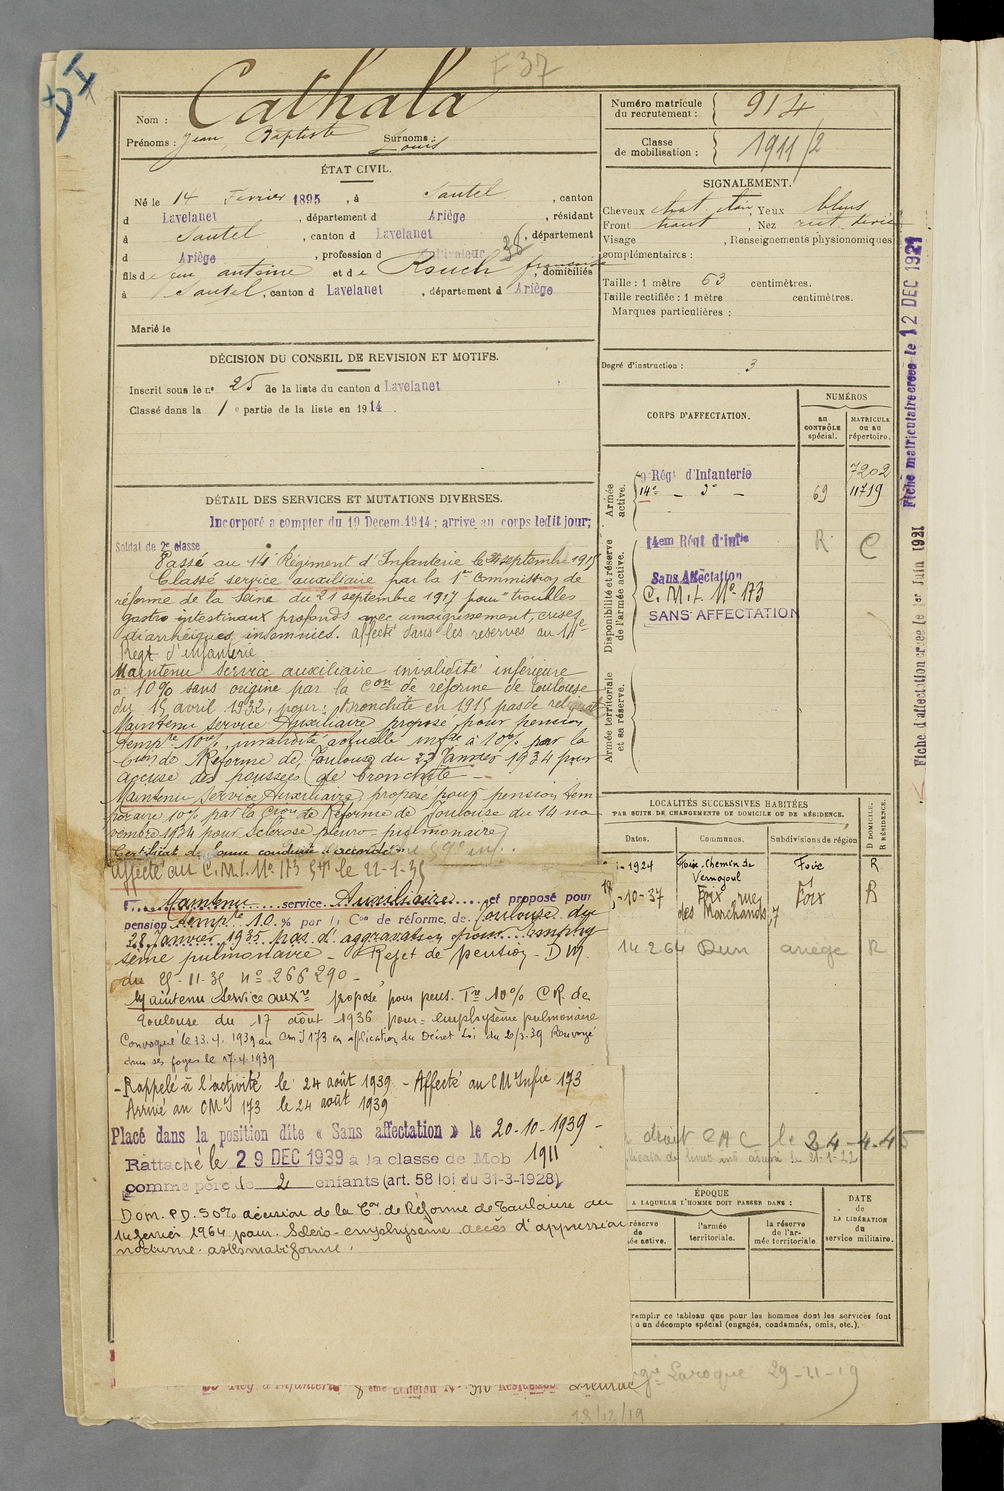 F 37
Cathala
Nom :
Prénoms : Jean, Baptiste
Surnoms : Louis
Numéro matricule
du recrutement : 914
Classe
de mobilisation : 1911/2
ÉTAT CIVIL.
Né le 14 Février 1895, à Sautel, canton
d Lavelanet, département d Ariège, résidant
à Sautel, canton d Lavelanet, département
d Ariège, profession d Cultivateur 38
fils de antoine et de Rouch françoise, domiciliés
à Sautel, canton d Lavelanet, département d Ariège
Marié le
SIGNALEMENT.
Cheveux chat. clair, Yeux bleus
Front haut, Nez rect.
Visage , Renseignements physionomiques
complémentaires :
Taille : 1 mètre 63 centimètres.
Taille rectifiée : 1 mètre centimètres.
Marques particulières :
Degré d'instruction : 3
DÉCISION DU CONSEIL DE REVISION ET MOTIFS.
Inscrit sous le no 25 de la liste du canton d Lavelanet
Classé dans la 1e partie de la liste en 1914.
DÉTAIL DES SERVICES ET MUTATIONS DIVERSES.
Incorporé a compter du 19 Decem. 1914 ; arrivé au corps ledit jour;
Soldat de 2e classe
Passé au 14e Régiment d'Infanterie le septembre 1915
Classé service auxiliaire par la 1re Commission de
réforme de la Seine du 21 septembre 1917 pour troubles
gastro intestinaux profonds avec amaigrissement, crises
diarrhéiques, insomnies. affecté dans les reserves au 14e
Regt d'infanterie
Maintenu Service auxiliaire invalidité inférieure
à 10% sans origine par la Con de réforme de toulouse
du 15 avril 1932, pour: Bronchite en 1915 pas de reliquat
Maintenu Service Auxiliaire proposé pour pension
tempre 10%, invalidité actuelle infre à 10% par la
Con de Réforme de Toulouse du 23 Janvier 1934 pour
accuse des poussées de bronchite
Maintenu Service Auxiliaire, proposé pour pension tem
poraire 10% par la Con de Réforme de Toulouse du 14 no
vembre 1934 pour Sclérose pleuro-pulmonaire
Certificat de bonne conduite "accordé"
Affecté au C.M.I. No 173 le 22-1-35
Maintenu service Auxiliaire et proposé pour
pension tempre 10 % par la Con de réforme de Toulouse du
28 Janvier 1935 pas d'aggravation pour emphy
sème pulmonaire - Rejet de pension - D M
du 25-11-35 no 266290 -
Maintenu Service auxre proposé pour pens. Tre 10% CR de
Toulouse du 17 août 1936 pour = emphysème pulmonaire
Convoqué le 13.4.1939 au CMI 173 en application du Décret Loi du 20/3.39 Renvoyé
dans ses foyers le 17.4.1939
- Rappelé à l'activité le 24 août 1939 - Affecté au CM Infie 173
Arrivé au CMI 173 le 24 août 1939
Placé dans la position dite « Sans affectation » le 20-10-1939 -
Rattaché le 29 DEC 1939 à la classe de Mob 1911
comme père de 2 enfants (art. 58 loi du 31-3-1928)
Dom. P.D. 50% décision de la Con de Réforme de Toulouse du
14 fevrier 1964 pour Sclero-emphysème accès d'oppression
nocturne asthmatiforme.
CORPS D'AFFECTATION.
NUMÉROS
AU CONTRÔLE spécial.
MATRICULE OU AU répertoire.
Armée active.
9e Régt d'Infanterie
7202
14e - d° -
69
11719
Disponibilité et réserve de l'armée active.
14em Régt d'infie
R
C
Sans Affectation
C.M.I. No 173
SANS AFFECTATION
Armée territoriale et sa réserve.
LOCALITÉS SUCCESSIVES HABITÉES
PAR SUITE DE CHANGEMENTS DE DOMICILE OU DE RÉSIDENCE.
Dates.
Communes.
Subdivisions de région
D DOMICILE.
R RÉSIDENCE.
-1924 Foix. Chemin de Vernajoul Foix R
-10-37 Foix rue des Marchands, 7 Foix R
14.2.64 Dun ariège R
droit CAC le 24-4-45
ÉPOQUE
A LAQUELLE L'HOMME DOIT PASSER DANS :
DATE
de
LA LIBÉRATION
du
service militaire.
l'armée
territoriale.
la réserve
de l'ar-
mée territoriale
remplir ce tableau que pour les hommes dont les services font
à un décompte spécial (engagés, condamnés, omis, etc.).
Laroque 29-11-19
18/12/19
Fiche matriculaire créée le 12 DEC 1921
Fiche d'affectation créée le 1er Juin 1921